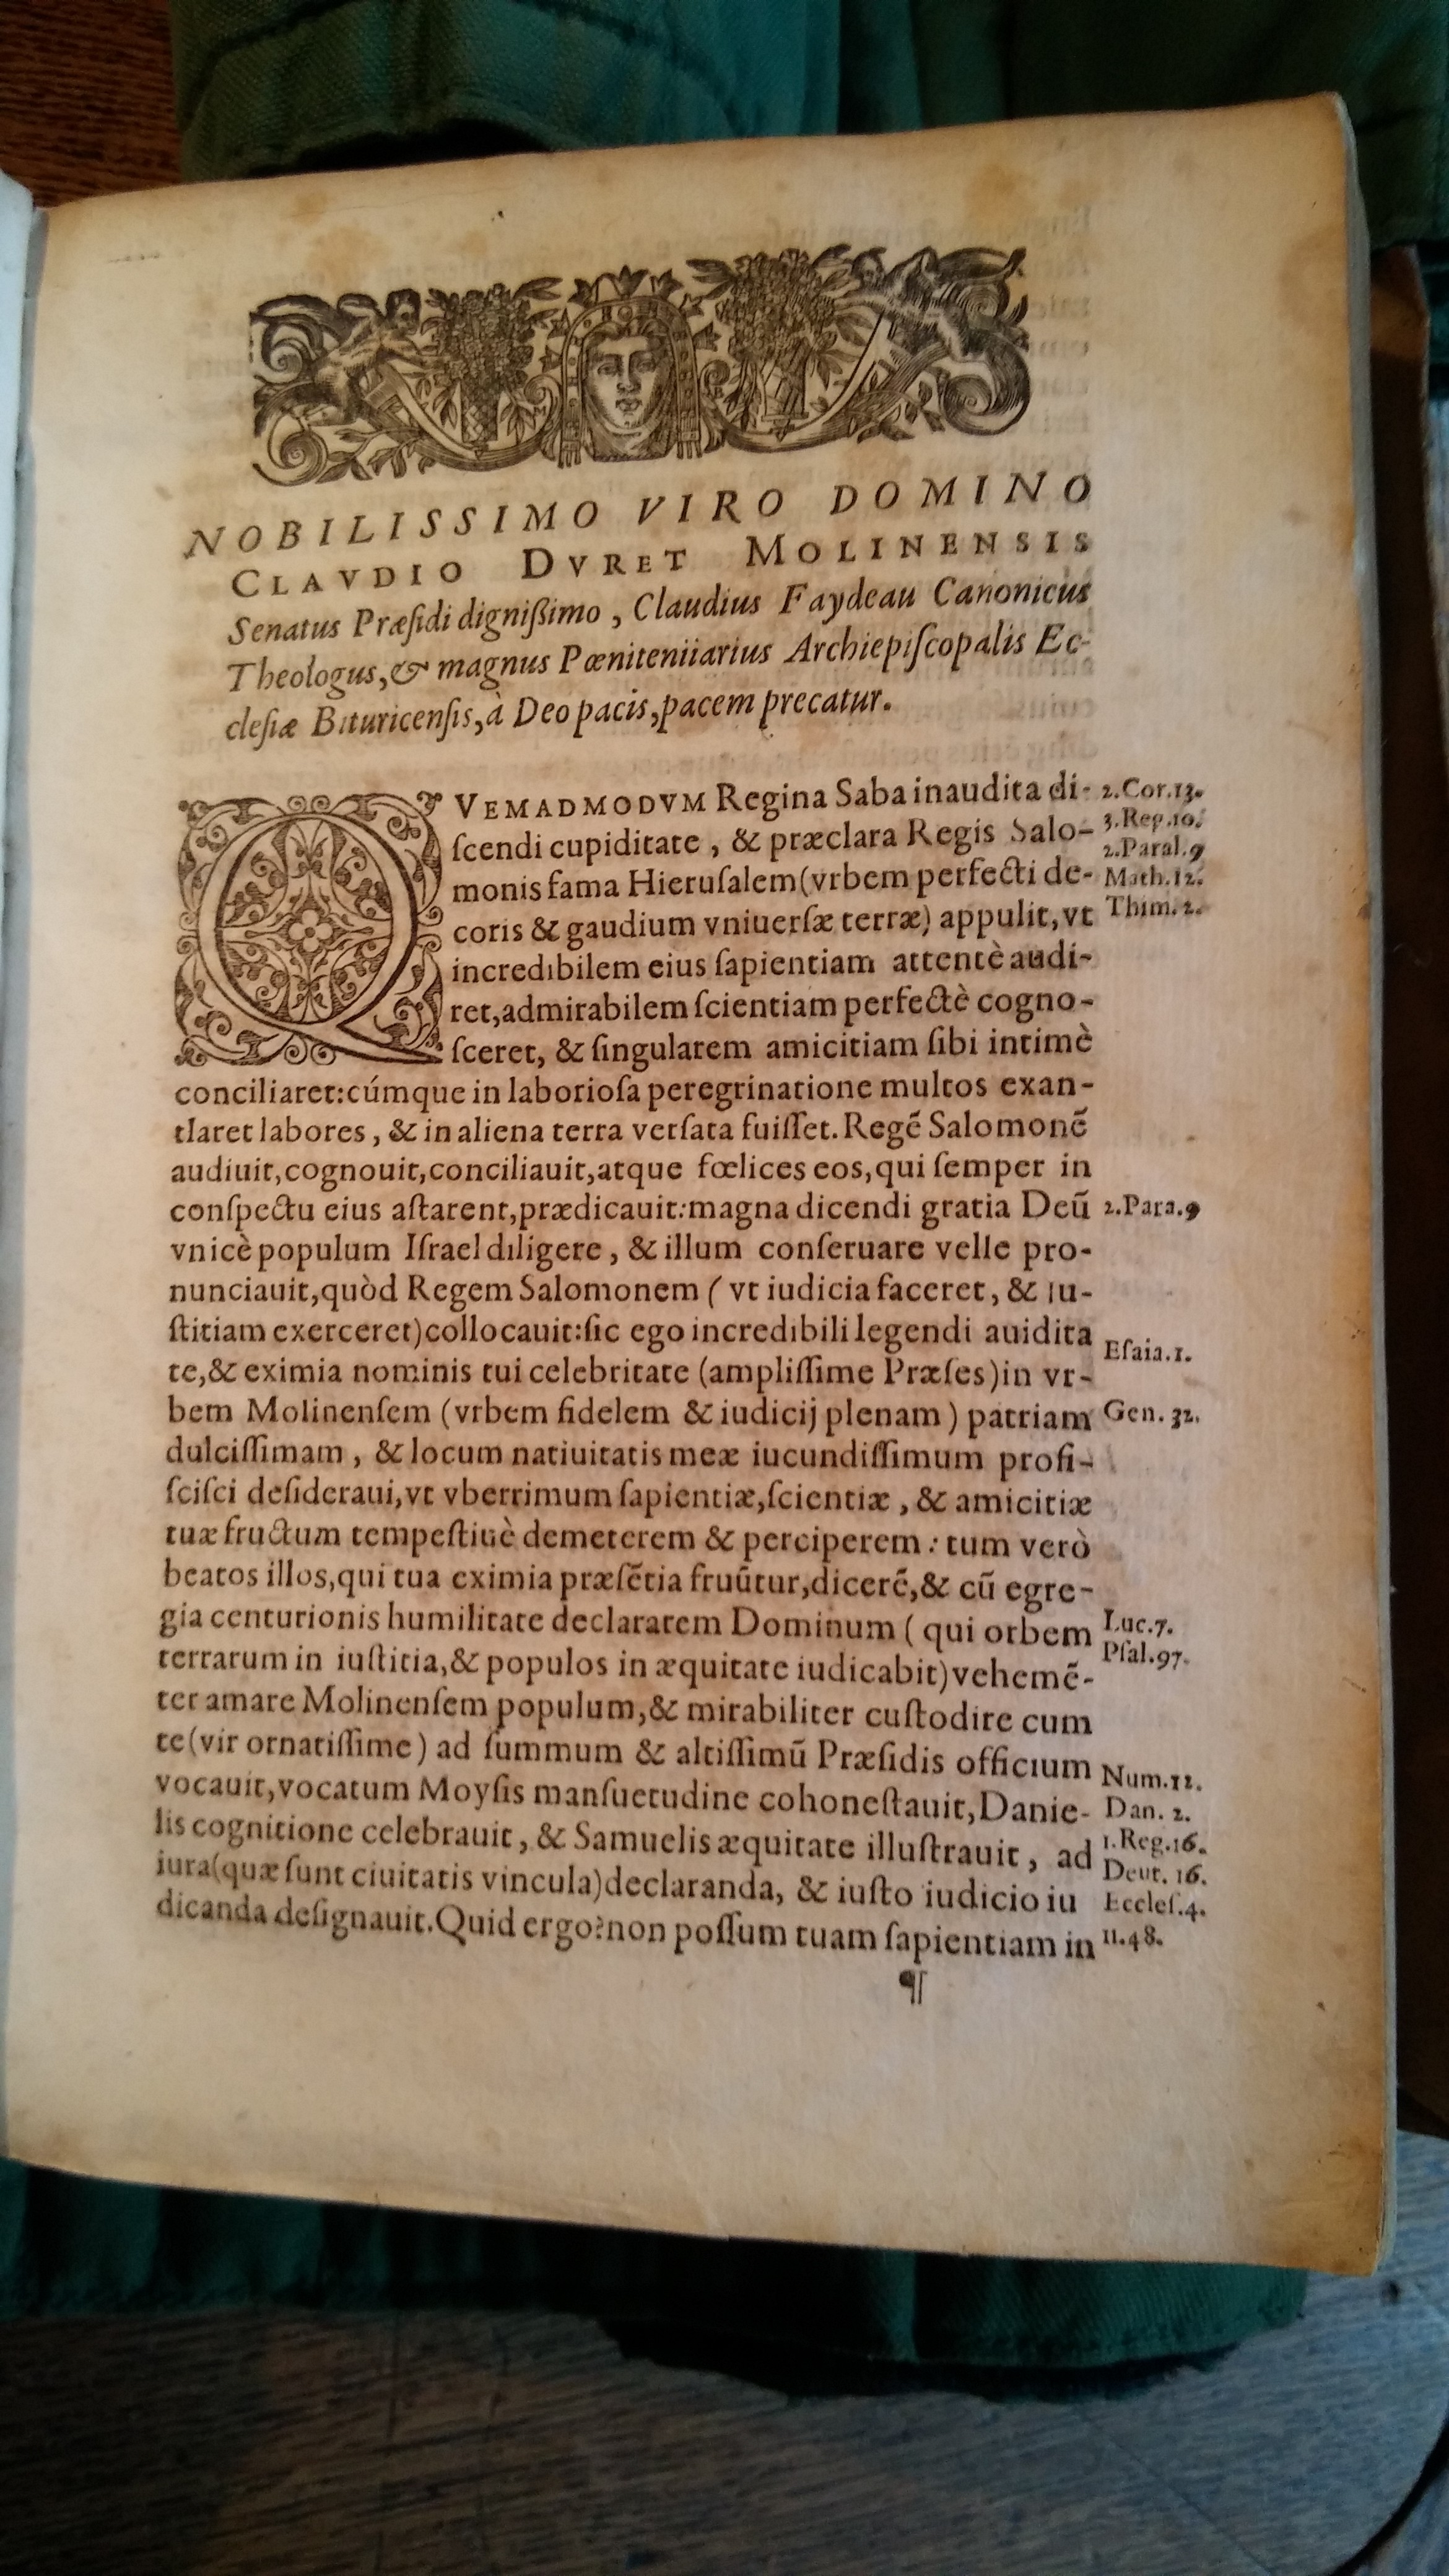 NOBILISSIMO VIRO DOMINO
CLAVDIO DVRET MOLINENSIS
Senatus Præſidi digniſſimo, Claudius Faydeau Canonicus
Theologus, & magnus Pœniteniiarius Archiepiſcopalis Ec-
cleſiæ Bituricenſis, à Deo pacis, pacem precatur.
QVEMADMODVM Regina Saba inaudita di-
ſcendi cupiditate, & præclara Regis Salo-
monis fama Hieruſalem (vrbem perfecti de-
coris & gaudium vniuerſæ terræ) appulit, vt
incredibilem eius ſapientiam attentè audi-
ret, admirabilem ſcientiam perfectè cogno-
ſceret, & ſingularem amicitiam ſibi intimè
conciliaret: cúmque in laborioſa peregrinatione multos exan-
tlaret labores, & in aliena terra verſata fuiſſet. Regẽ Salomonẽ
audiuit, cognouit, conciliauit, atque fœlices eos, qui ſemper in
conſpectu eius aſtarent, prædicauit: magna dicendi gratia Deũ
vnicè populum Iſrael diligere, & illum conſeruare velle pro-
nunciauit, quòd Regem Salomonem (vt iudicia faceret, & iu-
ſtitiam exerceret) collocauit: ſic ego incredibili legendi auidita
te, & eximia nominis tui celebritate (ampliſſime Præſes) in vr-
bem Molinenſem (vrbem fidelem & iudicij plenam) patriam
dulciſſimam, & locum natiuitatis meæ iucundiſſimum profi-
ſciſci deſideraui, vt vberrimum ſapientiæ, ſcientiæ, & amicitiæ
tuæ fructum tempeſtiuè demeterem & perciperem: tum verò
beatos illos, qui tua eximia præſẽtia fruũtur, dicerẽ, & cũ egre-
gia centurionis humilitate declararem Dominum (qui orbem
terrarum in iuſtitia, & populos in æquitate iudicabit) vehemẽ-
ter amare Molinenſem populum, & mirabiliter cuſtodire cum
te (vir ornatiſſime) ad ſummum & altiſſimũ Præſidis officium
vocauit, vocatum Moyſis manſuetudine cohoneſtauit, Danie-
lis cognitione celebrauit, & Samuelis æquitate illuſtrauit, ad
iura (quæ ſunt ciuitatis vincula) declaranda, & iuſto iudicio iu
dicanda deſignauit. Quid ergo? non poſſum tuam ſapientiam in
¶
2.Cor.13.
3.Reg.10.
2.Paral.9
Math.12.
Thim.2.
2.Para.9
Eſaia.1.
Gen. 32.
Luc.7.
Pſal.97.
Num.12.
Dan. 2.
1.Reg.16.
Deut. 16.
Eccleſ.4.
11.48.